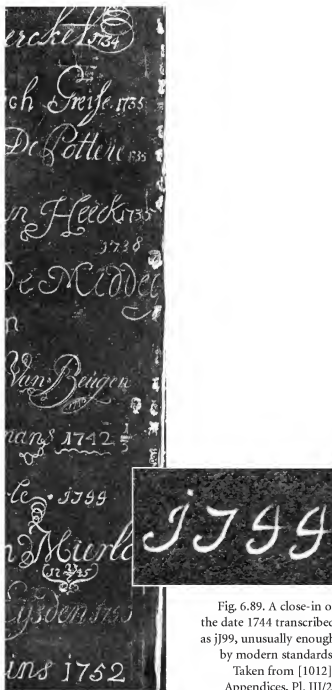 erckel 1734
ch Greife 1735
De Pottere 1735
n Heeck 1735
1738
De Middel
n
Van Beugen
mans 1742 1/3
le . j799
jJ99
n Murlo
Eijsden 1751
ins 1752
Fig. 6.89. A close-in o
the date 1744 transcribed
as jJ99, unusually enough
by modern standards
Taken from [1012]
Appendices, Pl. III/2